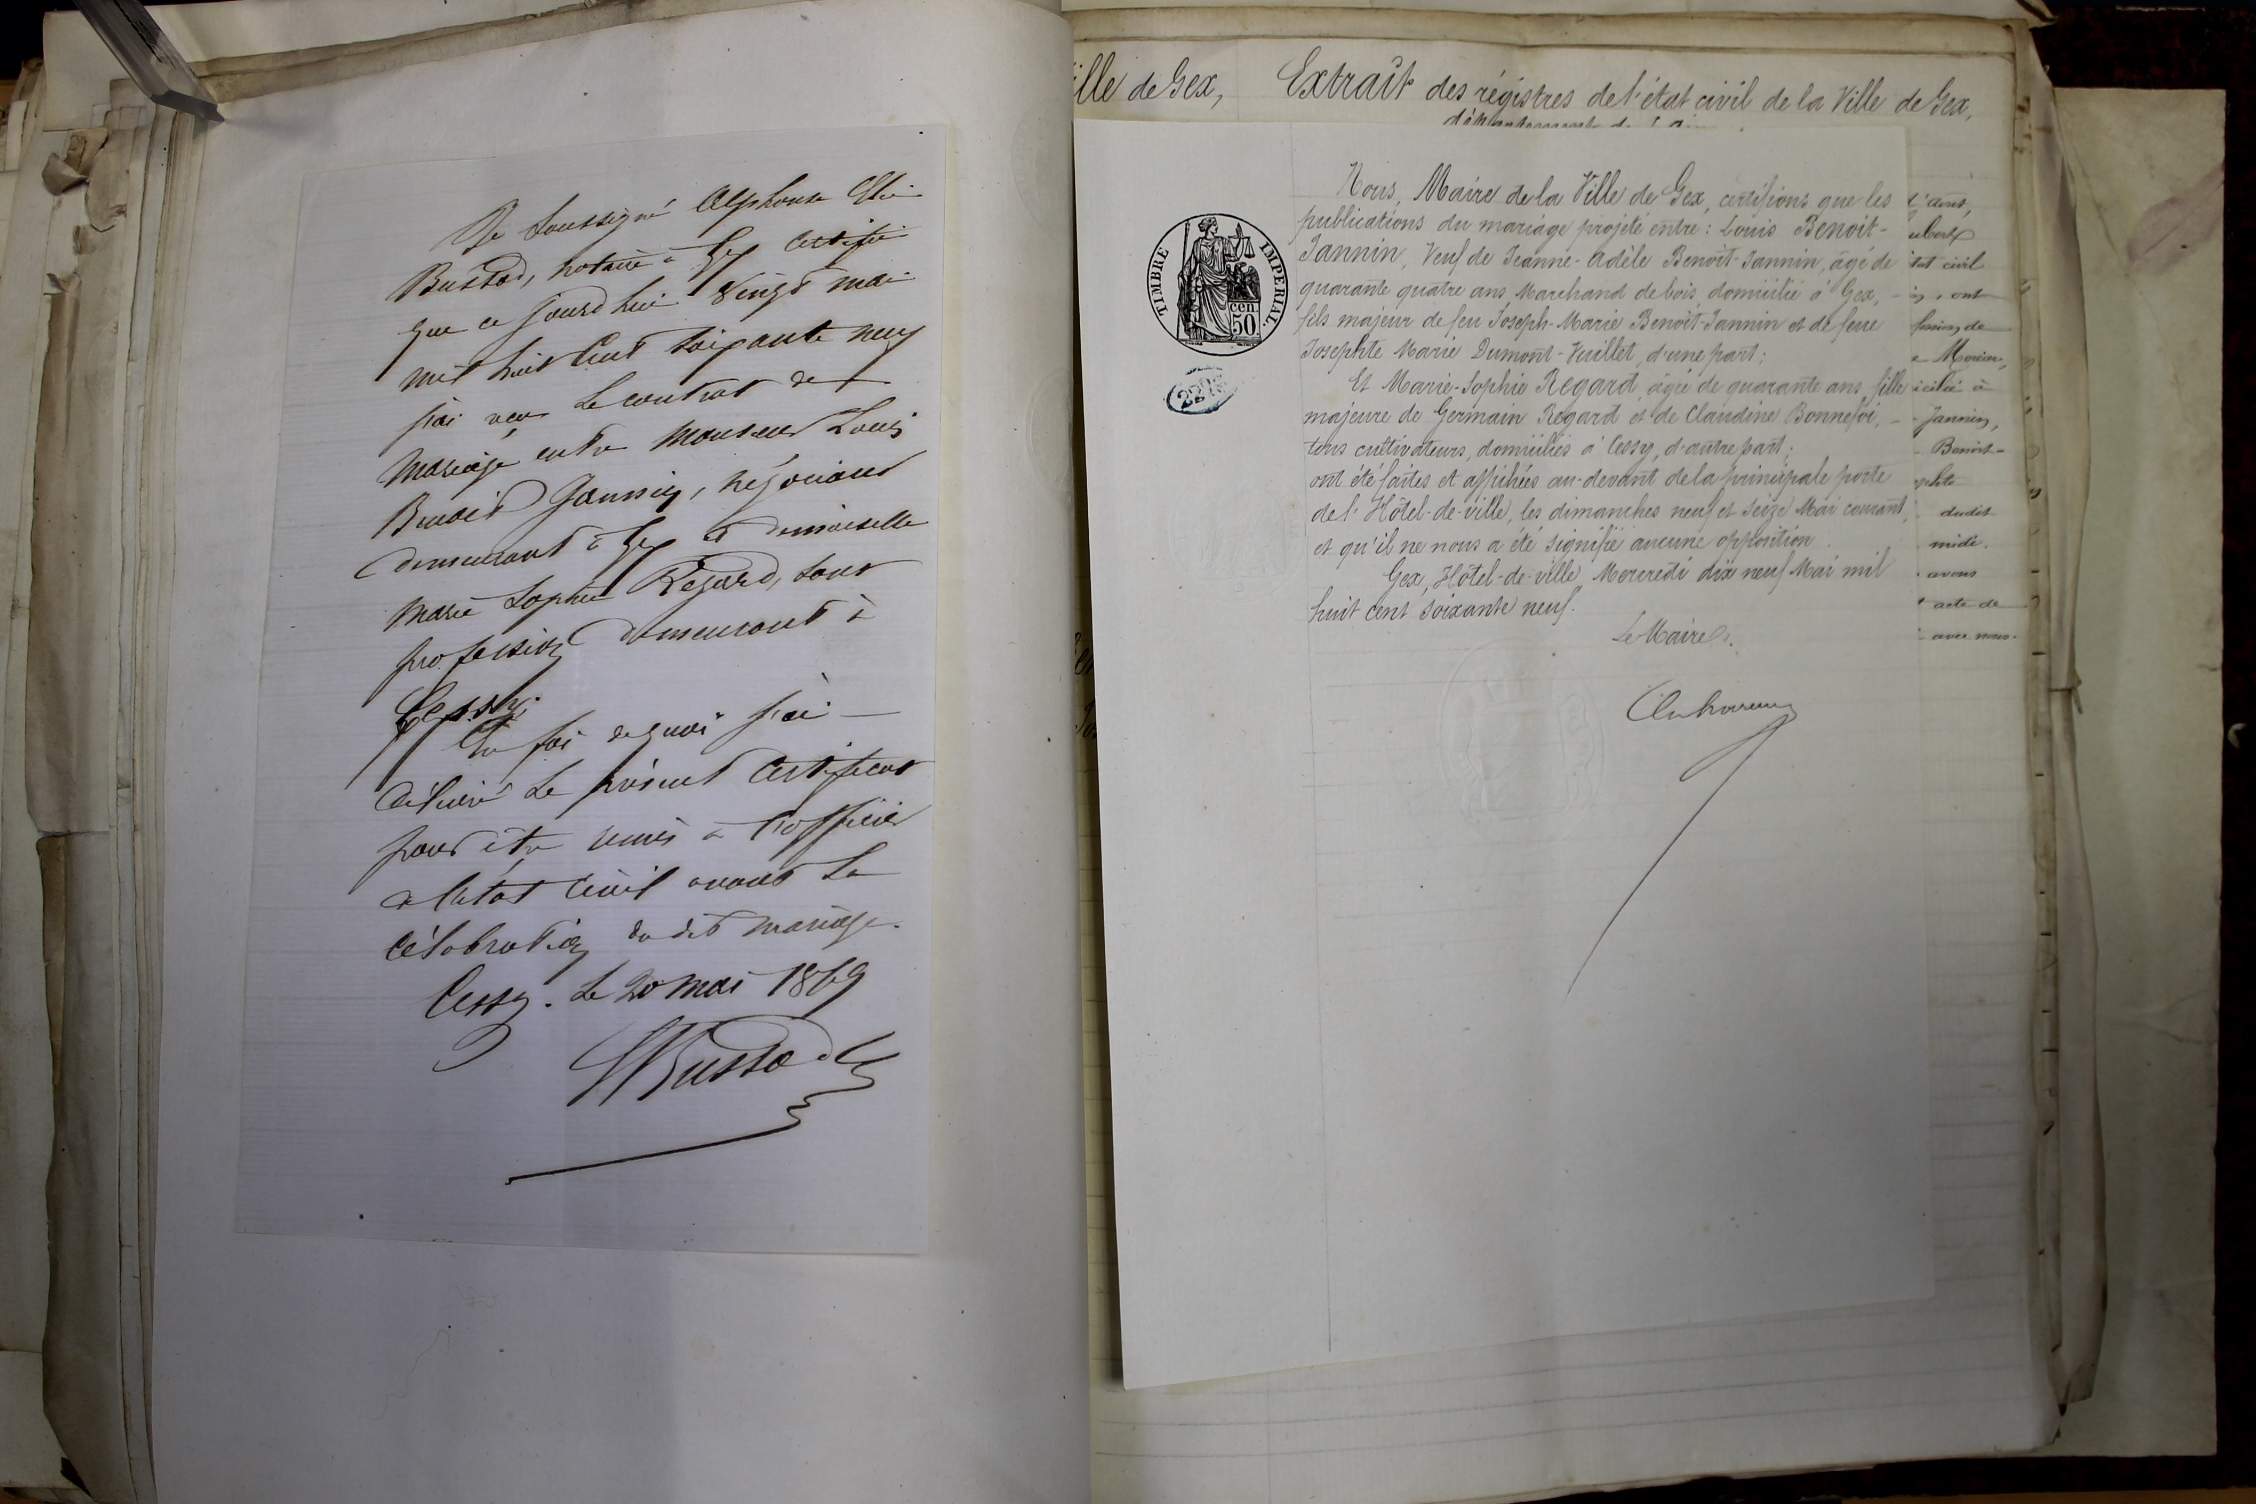 Je soussigné Alphonse Elie
Bussod, notaire à Gex certifie
que ce jourd'hui vingt mai
mil huit cent soixante neuf
j'ai reçu le contrat de
mariage entre Monsieur Louis
Benoit Jannin, négociant
demeurant à Gex et demoiselle
Marie Sophie Régard, sans
profession demeurant à
Cessy.
En foi de quoi j'ai
délivré le présent certificat
pour être remis à l'officier
de l'état civil avant la
célébration du dit mariage.
Cessy. le 20 mai 1869
Bussod
ille de Gex,
Extrait des régistres de l'état civil de la Ville de Gex,
TIMBRE IMPERIAL.
50 cen.
Nous, Maire de la Ville de Gex, certifions que les
publications du mariage projeté entre : Louis Benoit-
Jannin, Veuf de Jeanne-Adèle Benoit-Jannin, âgé de
quarante quatre ans, Marchand de bois, domicilié à Gex, -
fils majeur de feu Joseph-Marie Benoit-Jannin et de feue
Josephte Marie Dumont-Vuillet, d'une part ;
Et Marie-Sophie Régard, âgée de quarante ans, fille
majeure de Germain Régard et de Claudine Bonnefoi, -
tous cultivateurs, domiciliés à Cessy, d'autre part ;
ont été faites et affichées au-devant de la principale porte
de l'Hôtel-de-ville, les dimanches neuf et seize Mai courant,
et qu'il ne nous a été signifié aucune opposition.
Gex, Hôtel-de-ville, Mercredi dix neuf Mai mil
huit cent soixante neuf.
Le Maire.
état civil
ont
Jannin,
Benoit-
dudit
midi.
avons
acte de
avec nous.